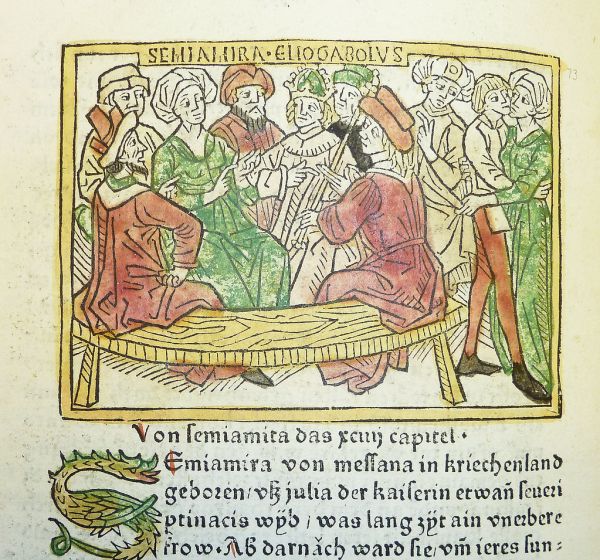 SEMIAMIRA · ELIOGABOLVS
Von ſemiamira das xciiij capitel ·
Semiamira von meſſana in kriechenland
geboren / vß julia der kaiſerin etwan̄ ſeueri
ptinacis wÿb / was lang zÿt ain vnerbere
frow · Ab darnăch ward ſie / vm̄ ieres ſun⸗